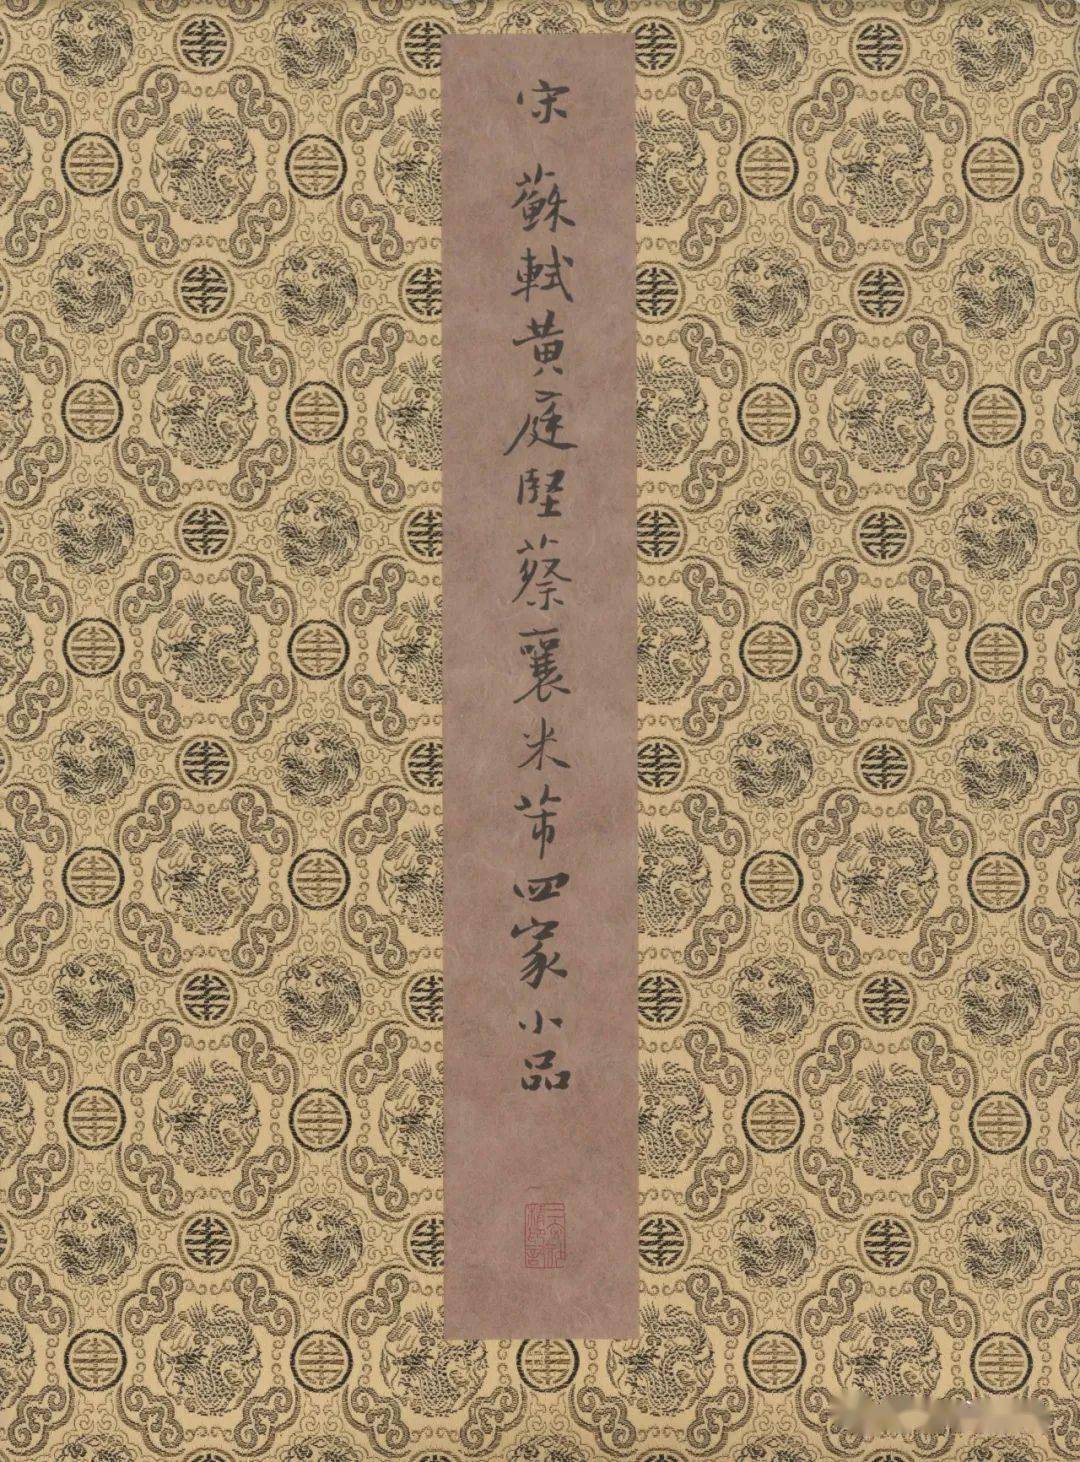 宋 蘇軾黄庭堅蔡襄米芾四家小品